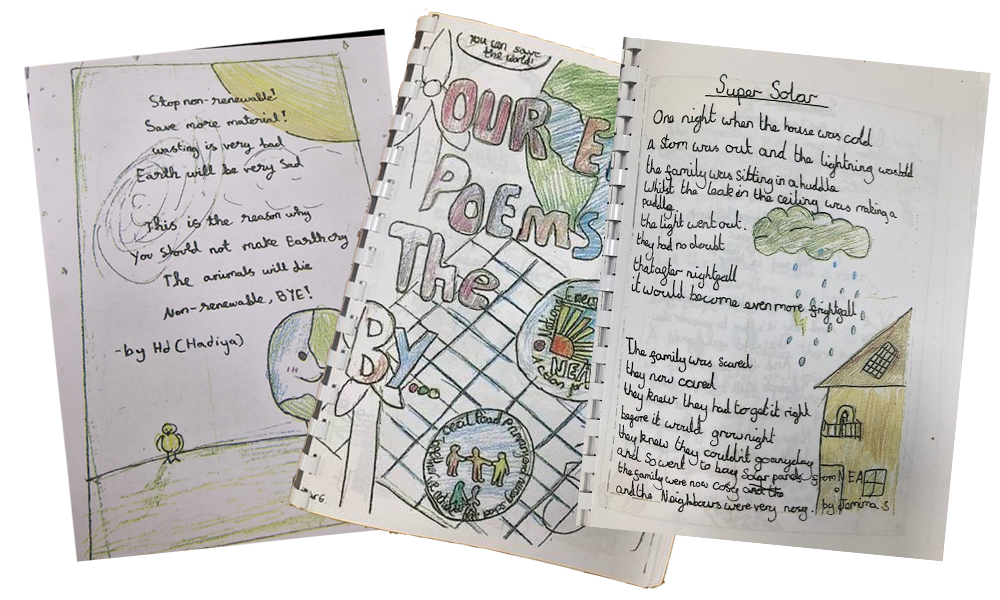 Stop non-renewable!
Save more material!
wasting is very bad
Earth will be very sad
This is the reason why
You should not make Earth cry
The animals will die
Non-renewable, BYE!
-by Hd (Hadiya)
You can save
the world!
OUR E
POEMS
The
BY...
NEA
Super Solar
One night when the house was cold
a storm was out and the lightning was bold
the family was sitting in a huddle
Whilst the leak in the ceiling was making a
puddle.
the light went out.
they had no doubt
that after nightfall
it would become even more frightfall
The family was scared
they now cared
they knew they had to get it right
before it would grow night
they knew they couldn't go anyday
and so went to buy solar panels from NEA
the family were now cosy and the
and the Neighbours were very nosy.
by Jemma.S